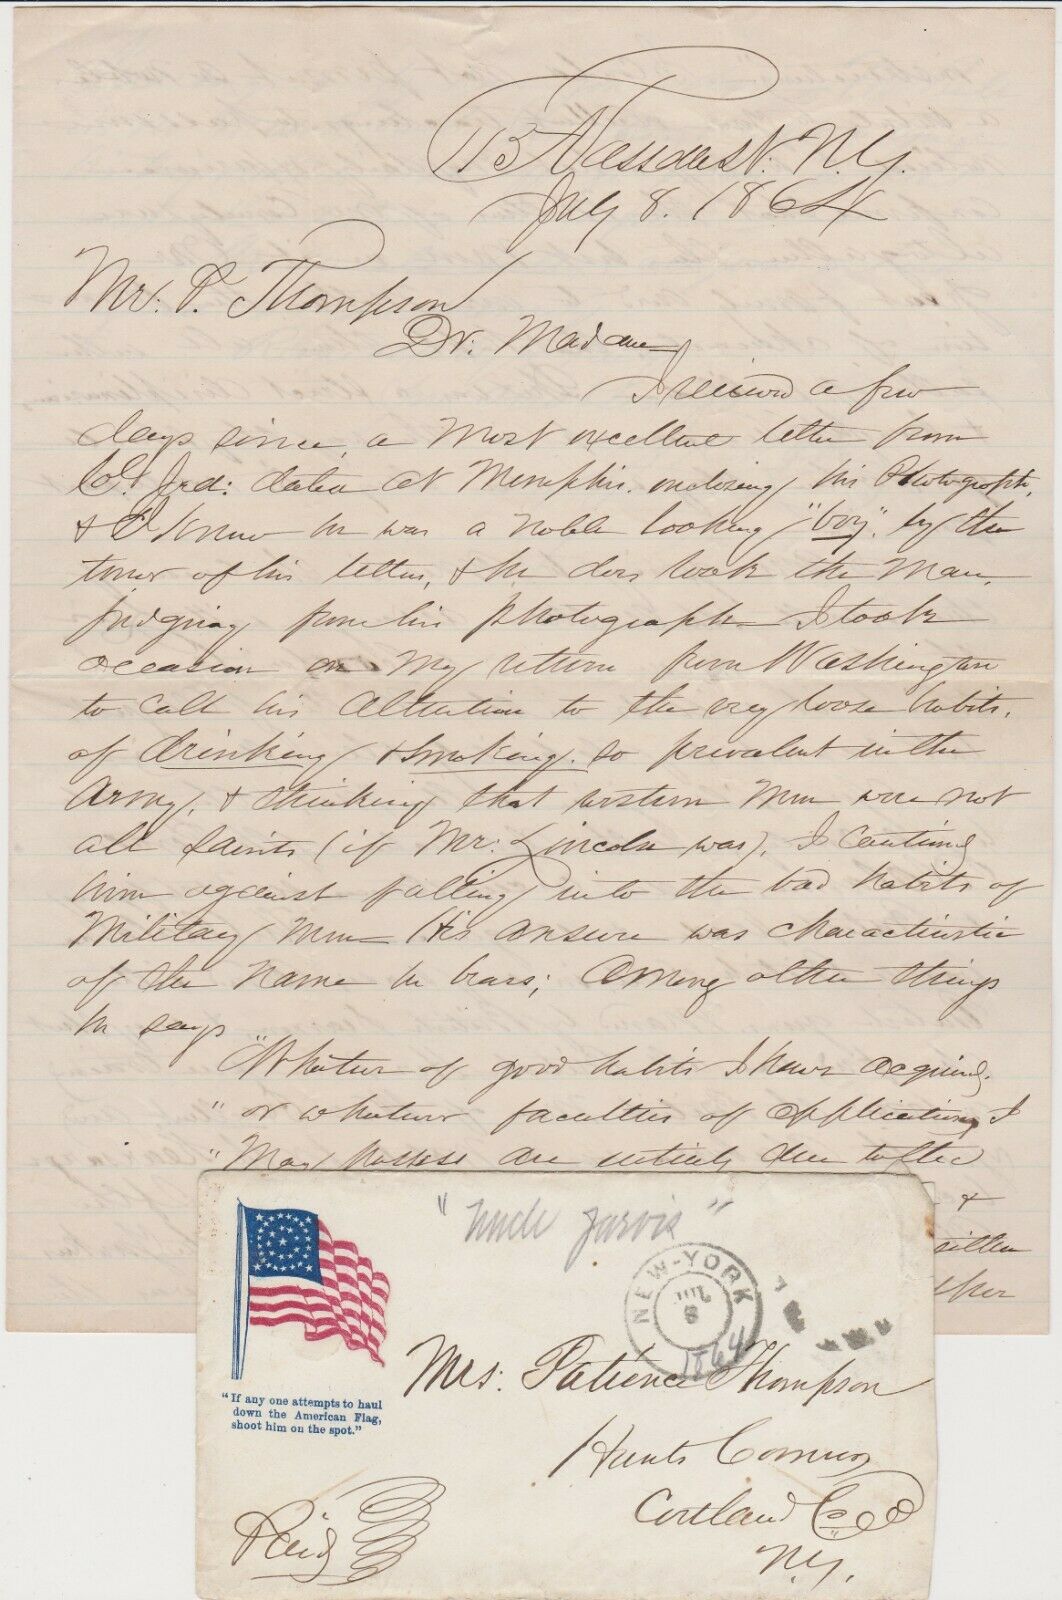 113 Nassau St. N.Y.
July 8. 1864
Mr. P. Thompson
Dr. Madam
I received a few
days since, a most excellent letter from
dated at Memphis. enclosing his Photograph,
& I knew he was a noble looking "boy". by the
tener of his letter, & he does look the Man,
judging from his photograph. I took
occasion on my return from Washington
to call his attention to the very loose habits.
of drinking & smoking. so prevalent in the
Army, & thinking that western Men were not
all saints (if Mr. Lincoln was). I cautiond
him against falling into the bad habits of
Military Men – His answer was characteristic
of the name he bears; Among other things
he says
"Whatever of good habits I have acquired,
" or whatever faculties of application, I
" May possess are entirely due to the
&
"Uncle Jarvis"
NEW-YORK
JUL
8
1864
"If any one attempts to haul
down the American Flag,
shoot him on the spot."
Mrs: Patience Thompson
Hunts Corners
Cortland Co
N.Y.
Paid